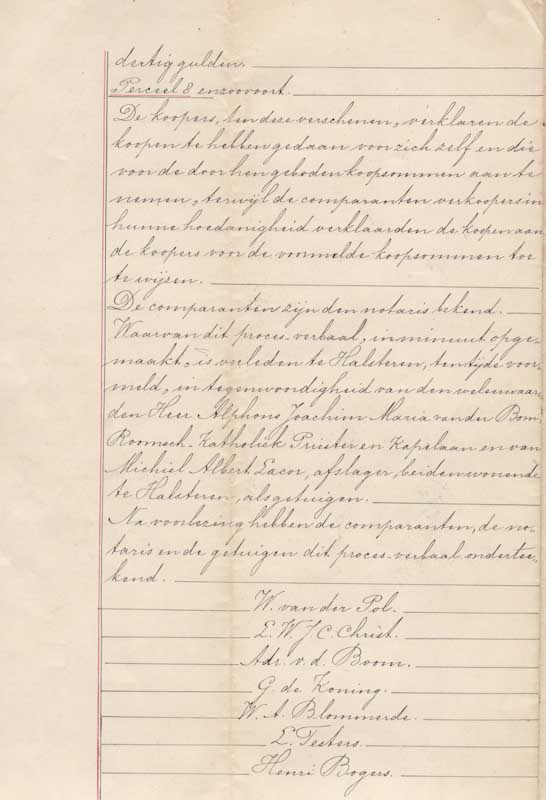 dertig gulden.
Perceel 8 enzoovoort.
De koopers, ten deze verschenen, verklaren de
koopen te hebben gedaan voor zich zelf en die
voor de door hen geboden koopsommen aan te
nemen, terwijl de comparanten verkoopers in
hunne hoedanigheid verklaarden de koopen aan
de koopers voor de voormelde koopsommen toe
te wijzen.
De comparanten zijn den notaris bekend.
Waarvan dit proces-verbaal, in minuut opge-
maakt, is verleden te Halsteren, ten tijde voor-
meld, in tegenwoordigheid van den weleerwaar-
den Heer Alphons Joachim Maria van der Bom
Roomsch-Katholiek Priester en Kapelaan en van
Michiel Albert Lacor, afslager, beiden wonende
te Halsteren, als getuigen.
Na voorlezing hebben de comparanten, de no-
taris en de getuigen dit proces-verbaal ondertee-
kend.
W. van der Pol.
L. W. J. C. Christ.
Adr. v. d. Boom.
G. de Koning.
W. A. Blommerde.
L. Testers.
Henri Bogers.